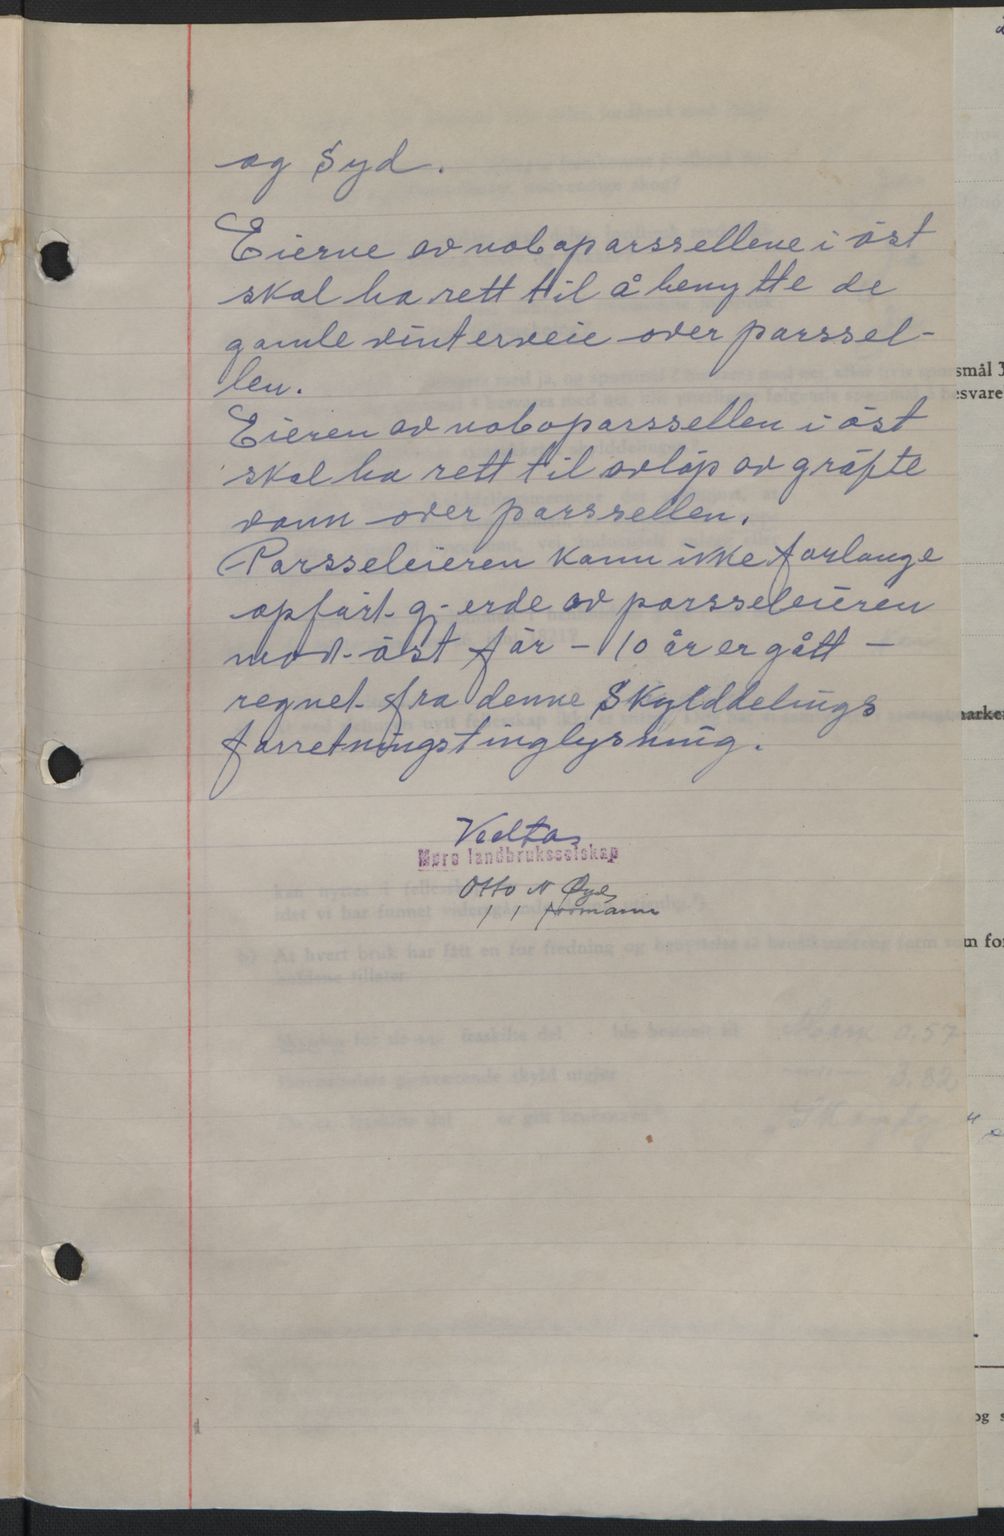 og Syd.
Eierne av naboparssellene i øst
skal ha rett til å benytte de
gamle vinterveie over parssel-
len.
Eieren av naboparssellen i øst
skal ha rett til avløp av grøfte
vann over parssellen.
Parsseleieren kann ikke forlange
opført gjerde av parsseleieren
mod øst før - 10 år er gått -
regnet fra denne Skylddelings
forretningstinglysning.
Vedtas
Møre landbruksselskap
Otto N Øye
formann
smål 3
esvare
m for
og s